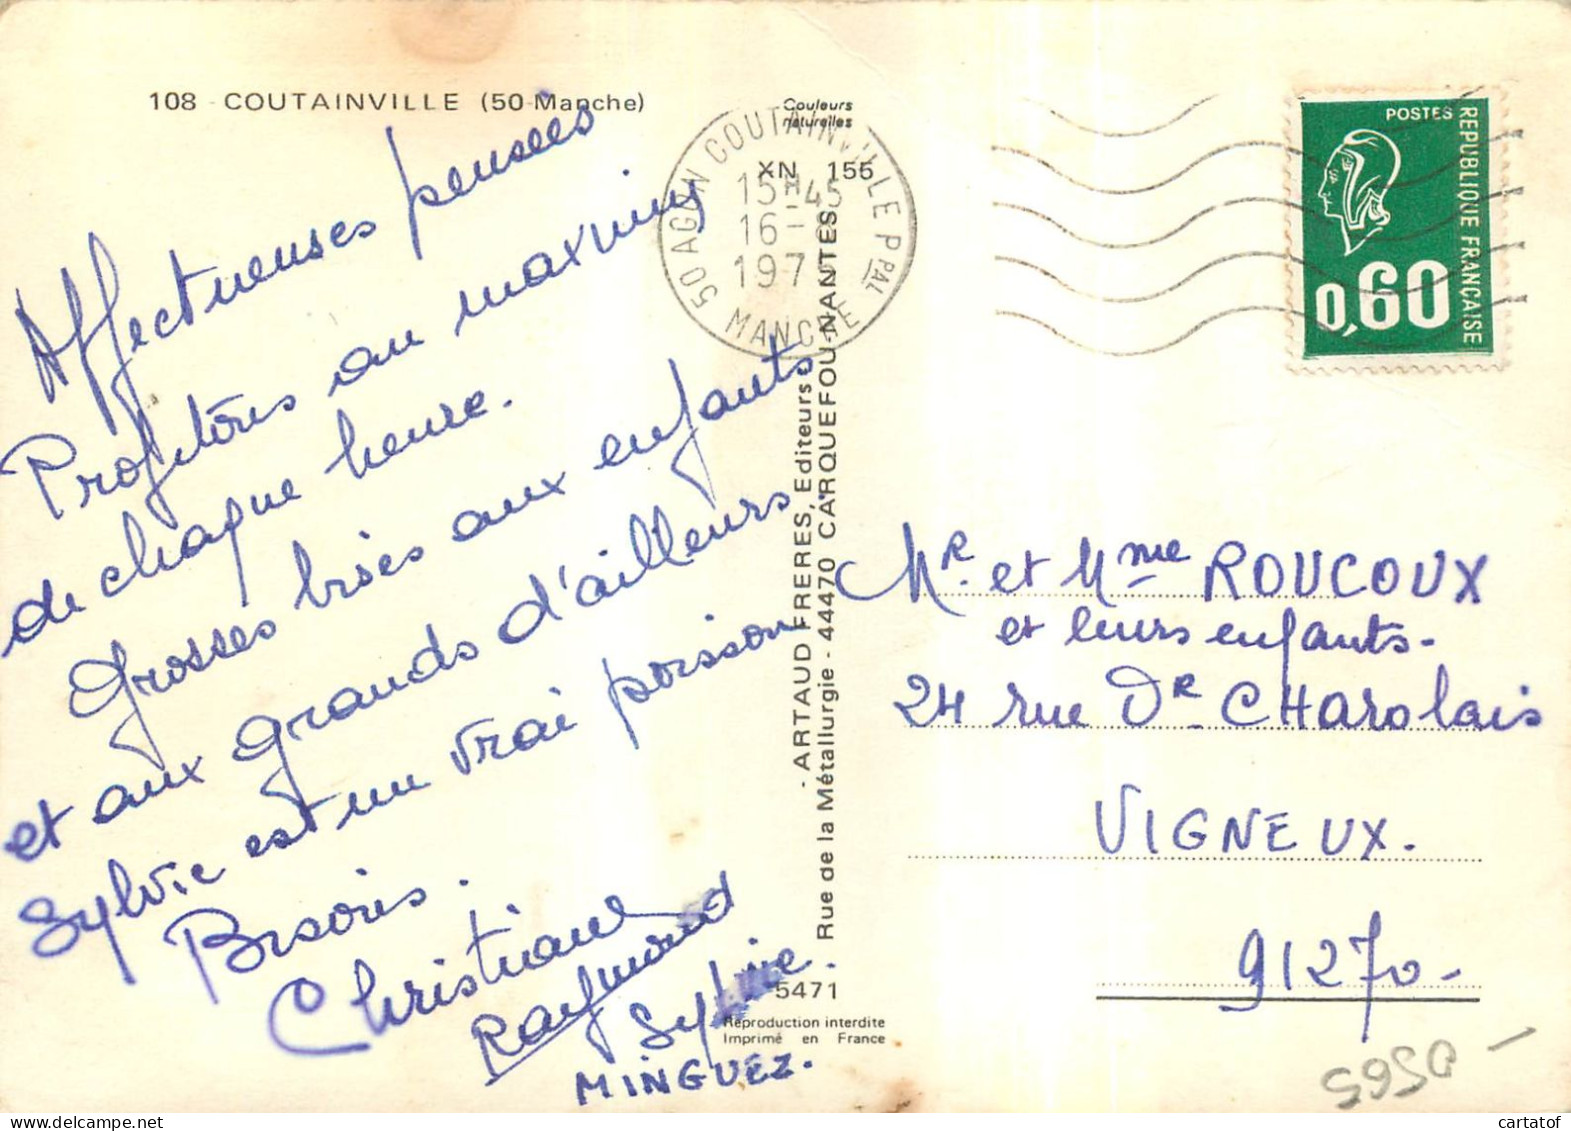 108 - COUTAINVILLE (50-Manche)
Couleurs
naturelles
XN 155
50 AGON COUTAINVILLE PPAL
15H45
16 -
197
MANCHE
POSTES
REPUBLIQUE FRANÇAISE
0,60
Affectueuses pensées
Profitons au maximum
de chaque heure.
Grosses bises aux enfants
et aux grands d'ailleurs.
Sylvie est un vrai poisson
Bisous.
Christiane
Raymond
Sylvie.
MINGUEZ.
- ARTAUD FRERES, Editeurs
Rue de la Métallurgie - 44470 CARQUEFOU-NANTES
5471
Reproduction interdite
Imprimé en France
Mr. et Mme ROUCOUX
et leurs enfants-
24 rue Dr CHArolais
VIGNEUX.
91270-
5950-
cartatof